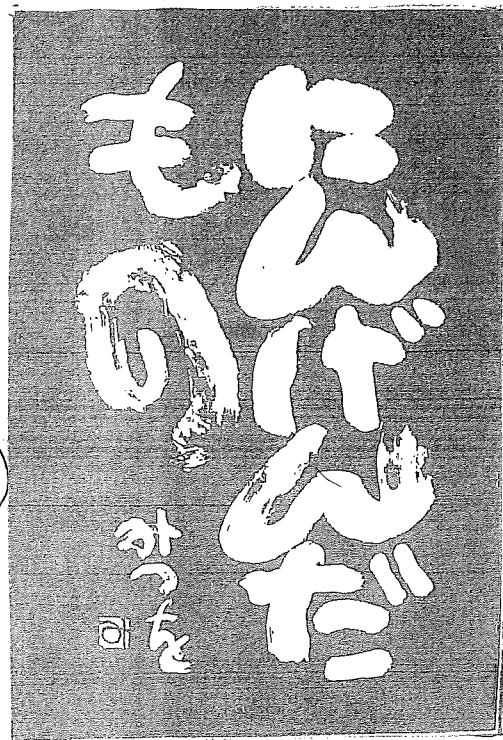 にんげんだ
もの
みつを